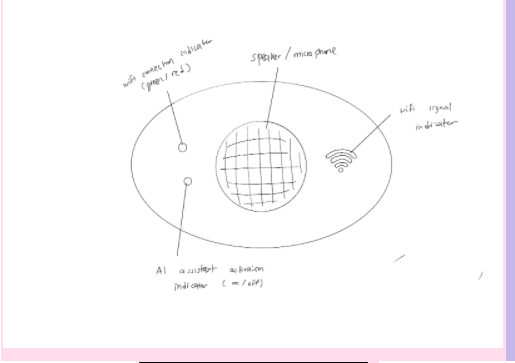 wifi connection indicator
(green / red)
speaker / microphone
wifi signal
indicator
AI assistant activation
indicator (on / off)